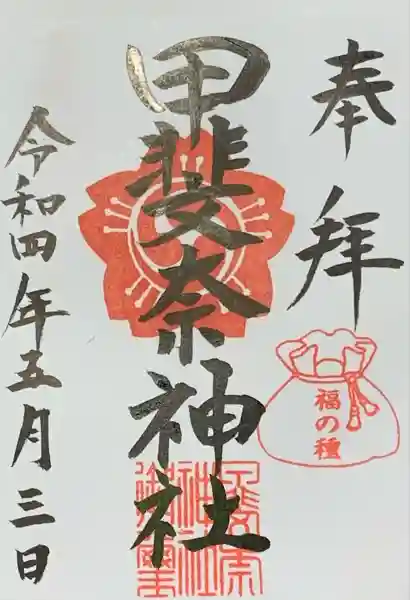 奉拝
福の種
甲斐奈神社
令和四年五月三日